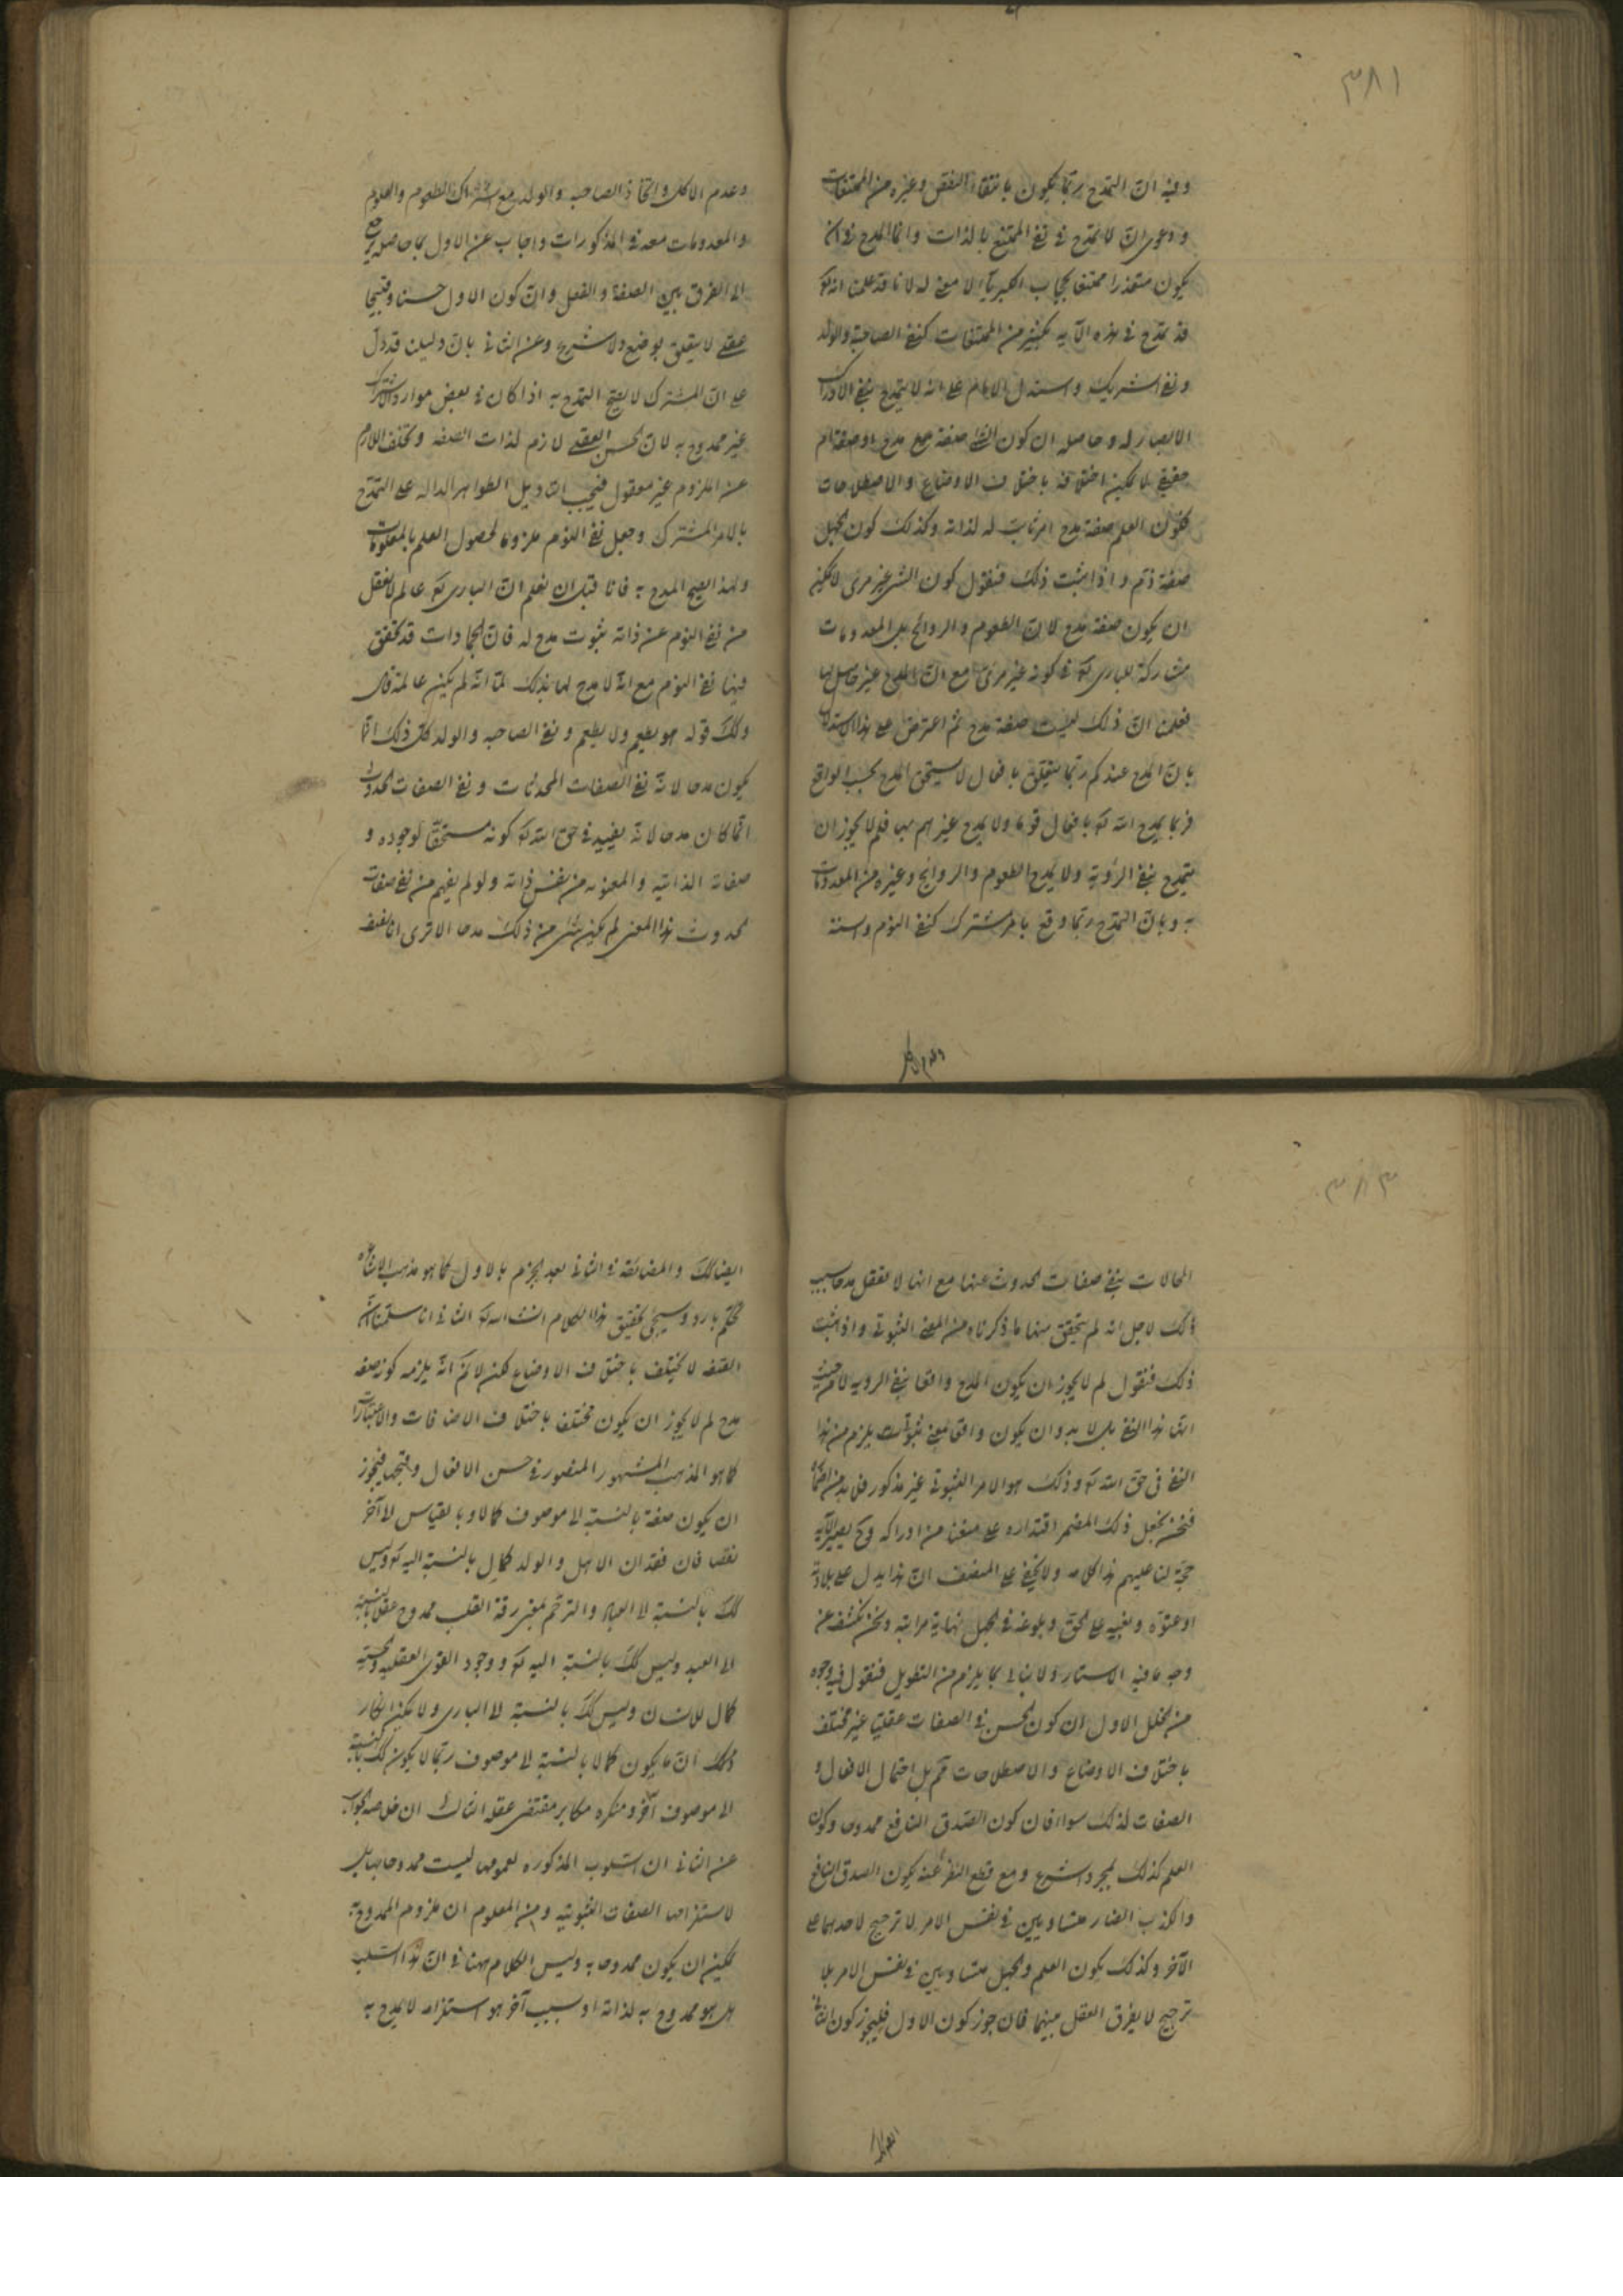 ٣٨١
وفيه انّ التمدّح ربّما يكون بانتفاء النقص وغيره من الممتنعات
ودعوى انّ لا تمدّح في نفي الممتنع بالذات وانما المدح في ان
يكون متعذرا ممتنعا بحجاب الكبرياء لا معنى له لانا قد علمنا انه تع
قد تمدّح في هذه الآية بكثير من الممتنعات كنفي الصاحبة والولد
ونفي الشريك واستدل الامام على انه لا يتمدح بنفي الادراك
الابصار له وحاصله ان كون الشئ صفة مدح او صفة ذم
حقيقي لا يمكن اختلافه باختلاف الاوضاع والاصطلاحات
فكون العلم صفة مدح امر ثابت له لذاته وكذلك كون الجهل
صفة ذم واذا ثبت ذلك فنقول كون الشئ غير مرئى لا يمكن
ان يكون صفة مدح لانّ الطعوم والروائح بل المعدومات
مشاركة للبارى تع في كونه غير مرئى مع انّ المدح غير حاصل لها
فعلمنا انّ ذلك ليست صفة مدح ثم اعترض على هذا الاستدلال
بانّ المدح عندكم ربّما يتعلق بافعال لا يستحق المدح بحسب الواقع
فربما يمدح الله تع بافعال قوما ولا يمدح غيرهم بها فلم لا يجوز ان
يتمدح بنفي الرؤية ولا يمدح الطعوم والروائح وغيره من المعدومات
به وبانّ التمدّح ربّما وقع بامر مشترك كنفي النوم والسنة
وعدم الاكل
وعدم الاكل واتخاذ الصاحبه والولد مع اشتراك الطعوم والعلوم
والمعدومات معه في المذكورات واجاب عن الاول بما حاصله يرجع
الى الفرق بين الصفة والفعل وانّ كون الاول حسنا وقبيحا
عقلي لا يتعلق بوضع ولا شرع وعن الثاني بانّ دليلنا قد دلّ
على انّ المشترك لا يصح التمدّح به اذا كان في بعض موارد الاشتراك
غير ممدوح به لانّ الحسن العقلي لازم لذات الصفه وتخلف اللازم
عن الملزوم غير معقول فيجب التاويل الظواهر الداله على التمدّح
بالامر المشترك وجعل نفي النوم ملزوما لحصول العلم بالمعلومات
ولهذا يصح المدح به فانا قبل ان نعلم انّ البارى تع عالم لا نعقل
من نفي النوم عن ذاته ثبوت مدح له فانّ الجمادات قد تحقق
فيها نفي النوم مع انّه لا مدح لها بذلك لمّا انّه لم يكن عالمة قال
وكك قوله هو يطعم ولا يطعم ونفي الصاحبه والولد كل ذلك انّما
يكون مدحا لانّه نفي الصفات المحدثات ونفي الصفات الحدوث
انّما كان مدحا لانّه يفيد في حق الله تع كونه مستحقا لوجوده و
صفاته الذاتيه والمعنويه من نفس ذاته ولو لم يفهم من نفي صفات
الحدوث هذا المعنى لم يكن شئ من ذلك مدحا الا ترى انا نصف
٣٨٣
المحالات بنفي صفات الحدوث عنها مع انها لا تعقل مدحا بسبب
ذلك لاجل انه لم يتحقق منها ما ذكرناه من المعنى الثبوتي واذا ثبت
ذلك فنقول لم لا يجوز ان يكون المدح واقعا بنفي الرويه لا من حيث
انه هذا النفي بل لا بد وان يكون واقعا بمعنى ثبوتي يلزم من هذا
النفي في حق الله تع وذلك هو الامر الثبوتي غير مذكور فلا بد من اضماره
فنحن نجعل ذلك المضمر اقتداره على منعنا من ادراكه وح يصير الآية
حجة لنا عليهم هذا كلامه ولا يخفى على المنصف انّ هذا يدل على بلادته
او عتوّه وبغيه على الحق وبلوغه في الجهل نهاية مراتبه ونحن نكشف عن
وجه ما فيه الاستار ولا نبالي بما يلزم من التطويل فنقول فيه وجوه
من الخلل الاول ان كون الحسن في الصفات عقليا غير مختلف
باختلاف الاوضاع والاصطلاحات تحكم بل احتمال الافعال و
الصفات لذلك سواء فان كون الصدق النافع ممدوحا وكون
العلم كذلك بمجرد الشرع ومع قطع النظر عنه يكون الصدق النافع
والكذب الضار متساويين في نفس الامر لا ترجيح لاحدهما على
الآخر وكذلك يكون العلم والجهل متساويين في نفس الامر بلا
ترجيح لا يفرق العقل بينهما فان جوز كون الاول فليجوز كون الثاني
ايضا كك والمضائقة في الثاني بعد الجزم بالاول كما هو مذهب الاشاعرة
تحكّم بارد وسيجئ تحقيق هذا الكلام انشاء الله تع الثاني انا سلمنا انّ
الصفه لا تختلف باختلاف الاوضاع لكن لانم انّه يلزمه كونه صفه
مدح لم لا يجوز ان يكون مختلفا باختلاف الاضافات والاعتبارات
كما هو المذهب المشهور المنصور في حسن الافعال وقبحها فيجوز
ان يكون صفة بالنسبة الى موصوف كمالا وبالقياس الى آخر
نقصا فان فقدان الاهل والولد كمال بالنسبة اليه تع وليس
كك بالنسبة الى العباد والترحّم بمعنى رقة القلب ممدوح عقلا بالنسبة
الى العبد وليس كك بالنسبة اليه تع ووجود القوى العقليه والحسيّة
كمال للانسان وليس كك بالنسبة الى البارى ولا يمكن انكار
ذلك انّ ما يكون كمالا بالنسبة الى موصوف ربّما لا يكون كك بالنسبة
الى موصوف آخر ومنكره مكابر مقتضى عقله الثالث ان خلاصه الجواب
عن الثاني ان السلوب المذكوره لعمومها ليست ممدوحا بها بل
لاستلزامها الصفات الثبوتيه ومن المعلوم ان ملزوم الممدوح به
يمكن ان يكون ممدوحا به وليس الكلام ههنا في انّ هذا السلب
هل هو ممدوح به لذاته او بسبب آخر هو استلزامه لا يمدح به